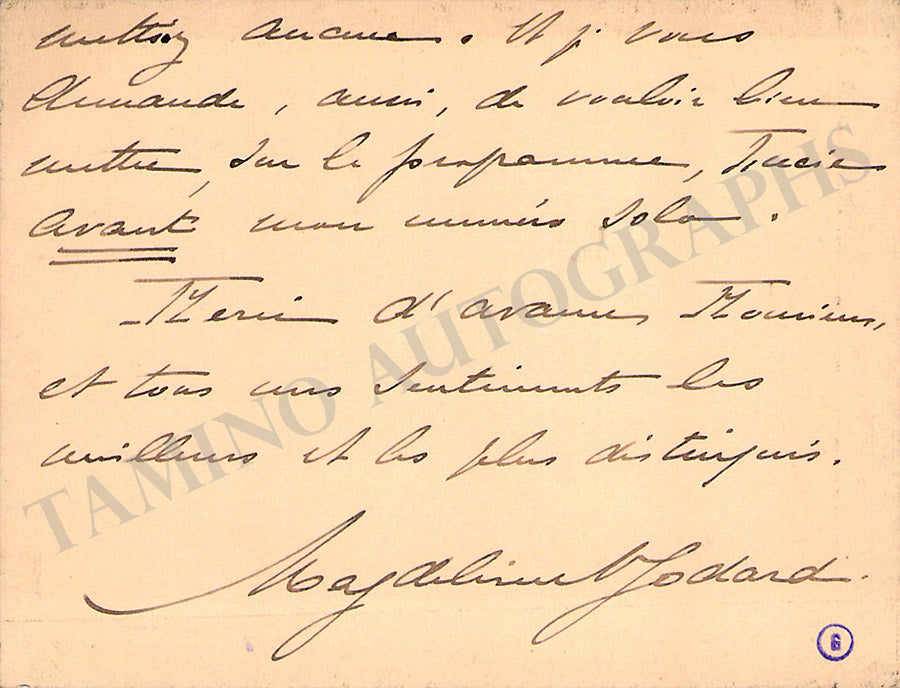 mettiez aucune. Et je vous
demande, aussi, de vouloir bien
mettre, sur le programme,
avant mon numéro solo.
Merci d'avance Monsieur,
et tous mes sentiments les
meilleurs et les plus distingués.
Magdeleine Godard.
TAMINO AUTOGRAPHS
G